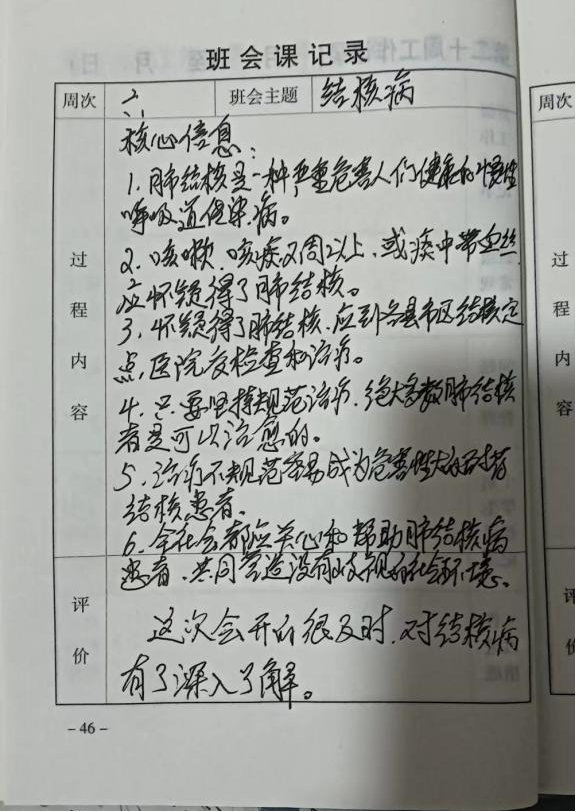 班会课记录
周次 六 班会主题 结核病
过程内容
核心信息：
1. 肺结核是一种严重危害人们健康的慢性
呼吸道传染病。
2. 咳嗽、咳痰2周以上、或痰中带血丝
应怀疑得了肺结核。
3. 怀疑得了肺结核、应到各县市区结核定
点医院去检查和治疗。
4. 只要坚持规范治疗、绝大多数肺结核
者是可以治愈的。
5. 治疗不规范容易成为危害性大的耐药
结核患者。
6. 全社会都应关心和帮助肺结核病
患者、共同营造没有歧视的社会环境。
评价
这次会开的很及时、对结核病
有了深入了解。
- 46 -
周次
过程内容